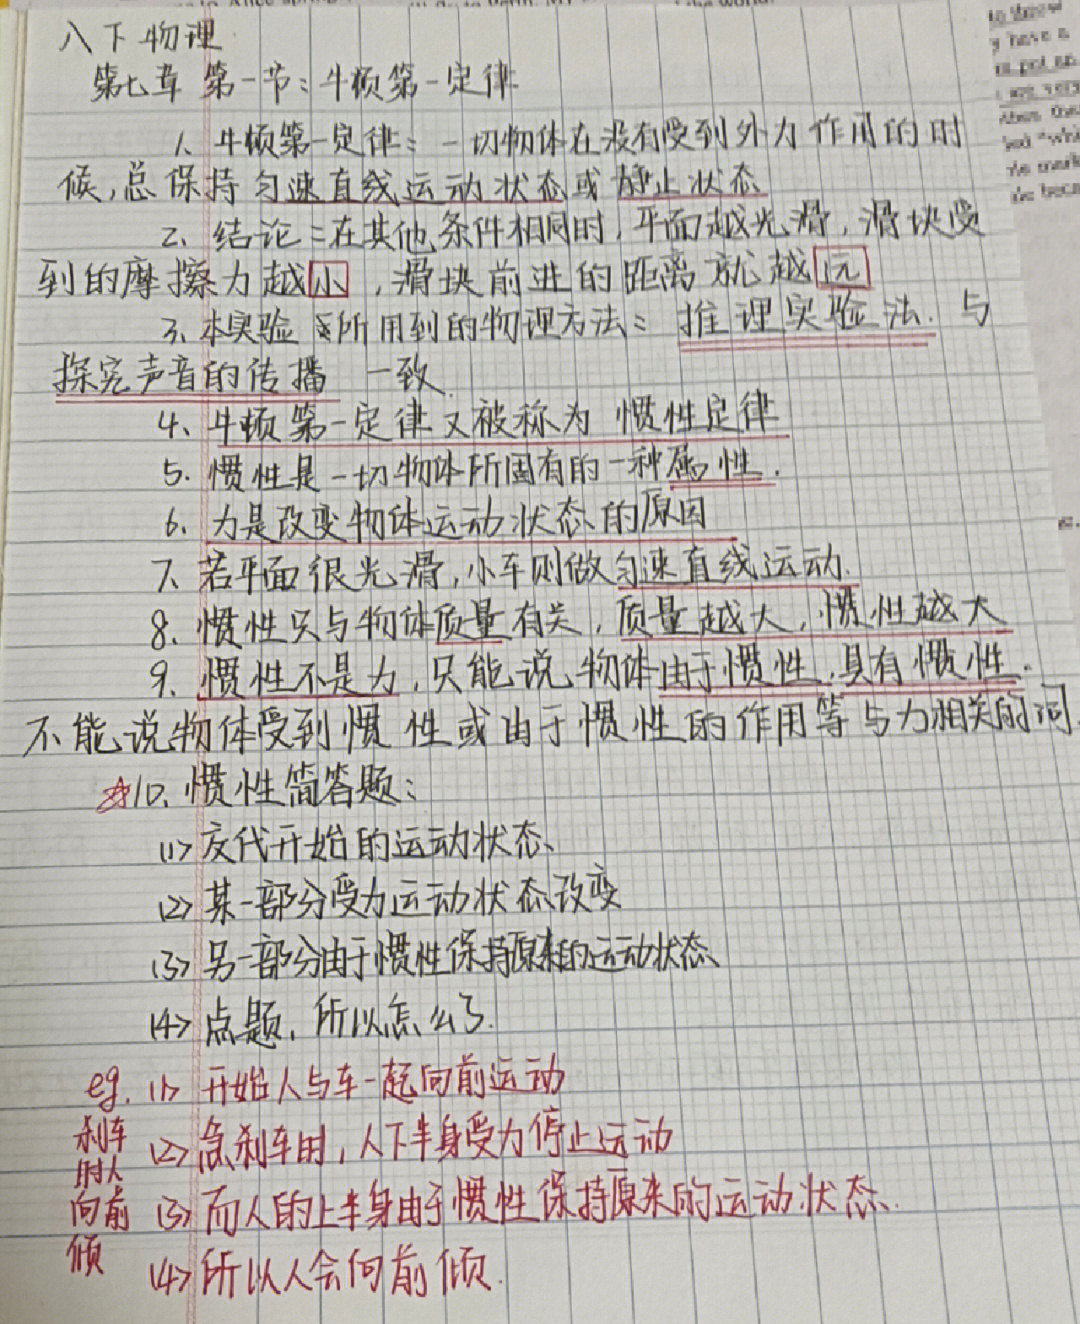 八下物理
第七章 第一节:牛顿第一定律
1、牛顿第一定律:一切物体在没有受到外力作用的时
候,总保持匀速直线运动状态或静止状态
2、结论:在其他条件相同时,平面越光滑,滑块受
到的摩擦力越小,滑块前进的距离就越远
3、本实验所用到的物理方法:推理实验法.与
探究声音的传播 一致.
4、牛顿第一定律又被称为 惯性定律
5.惯性是一切物体所固有的一种属性.
6、力是改变物体运动状态的原因
7、若平面很光滑,小车则做匀速直线运动.
8、惯性只与物体质量有关,质量越大,惯性越大
9、惯性不是力,只能说物体由于惯性,具有惯性.
不能说物体受到惯性或由于惯性的作用等与力相关的词.
☆10、惯性简答题:
(1)交代开始的运动状态、
(2)某一部分受力运动状态改变
(3)另一部分由于惯性保持原来的运动状态、
(4)点题,所以怎么了.
eg. (1) 开始人与车一起向前运动
刹车时人向前倾
(2)急刹车时,人下半身受力停止运动
(3)而人的上半身由于惯性保持原来的运动状态.
(4)所以人会向前倾.